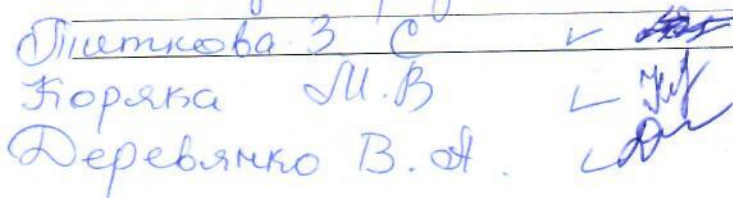 Титкова З С
Коряка М.В
Деревянко В.А.